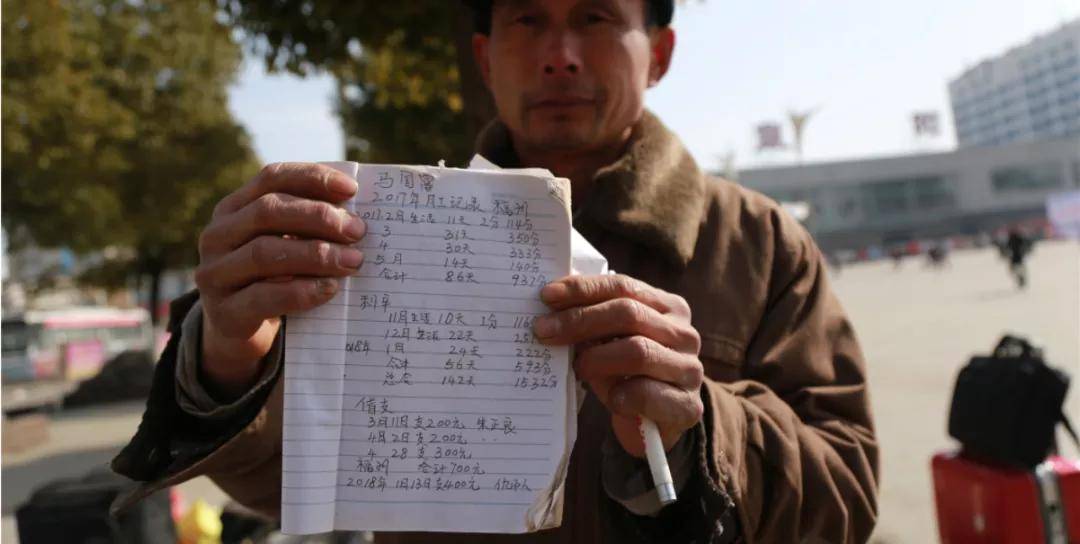 马国富
2017年月工记录 福州
2017.2月生活 11天 2分 114分
3 31天 350分
4 30天 333分
5月 14天 140分
合计 86天 937分
利辛
11月生活 10天 1分 116分
12月生活 22天
2018年 1月 24天 222分
合计 56天 593分
总合 142天 1532分
借支
3月11日支200元 朱正良
4月2日支200元 ..
4 28支300元
福州 合计700元
2018年1月13日支400元